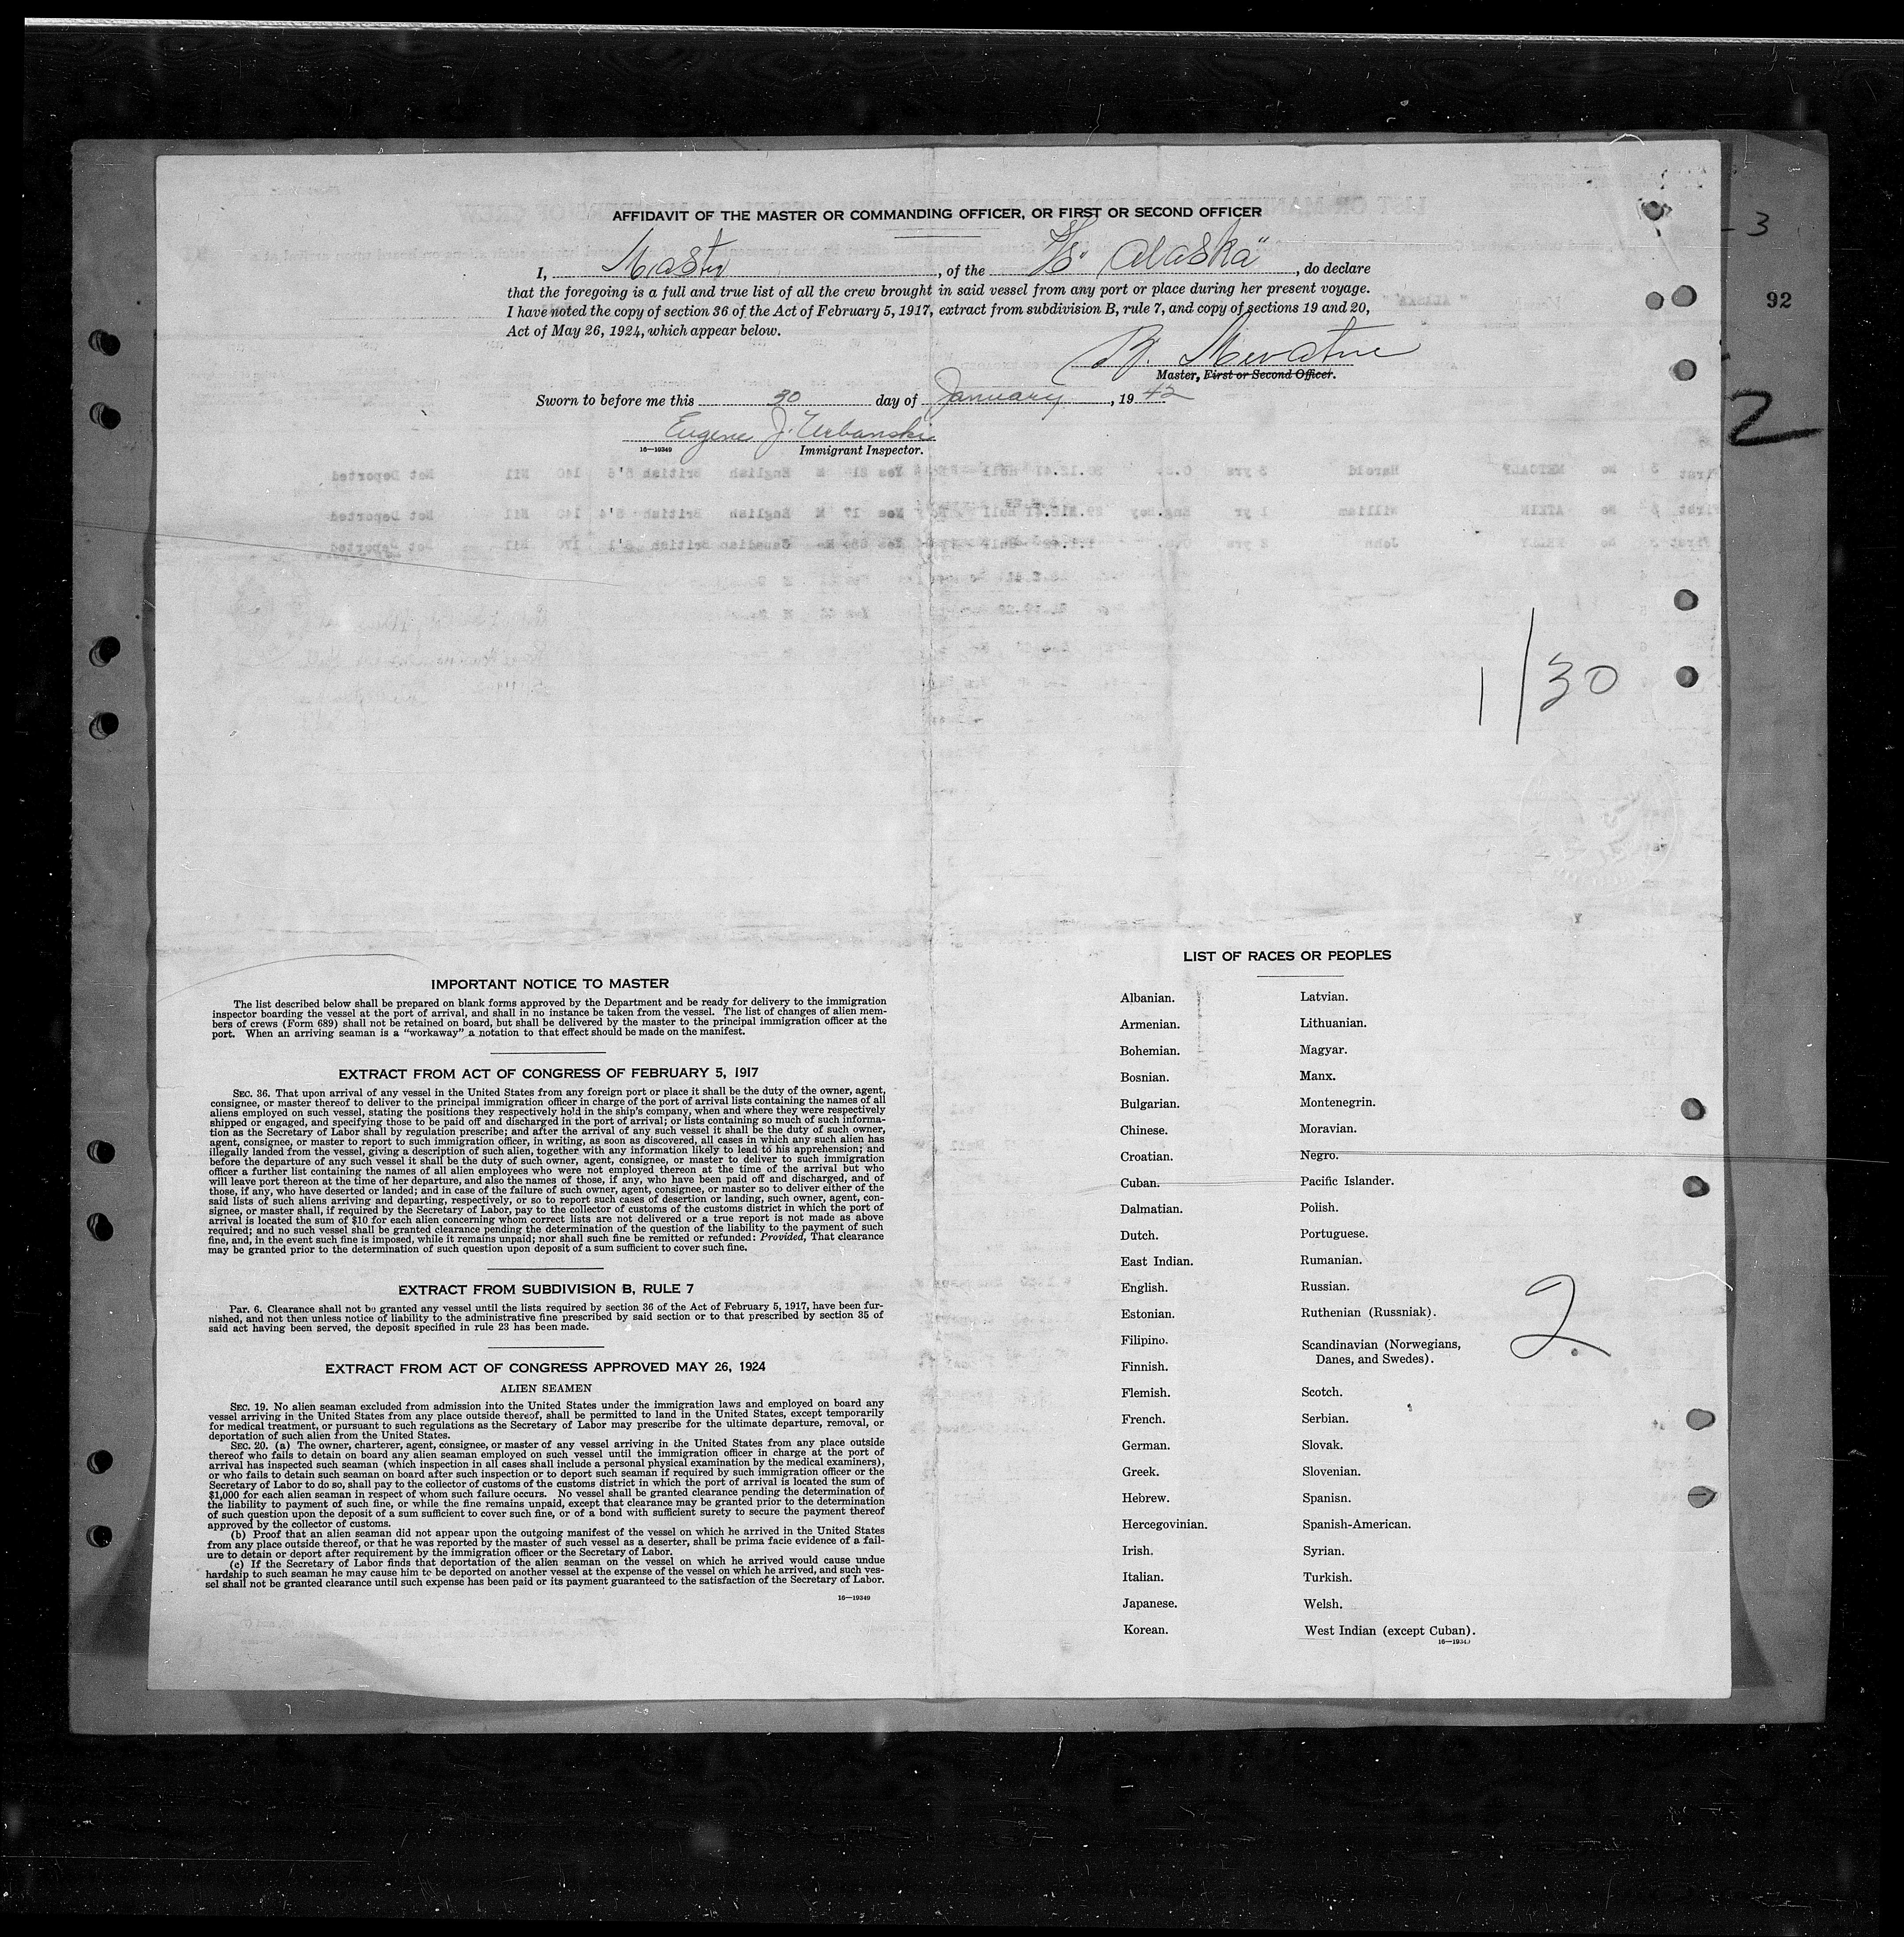 AFFIDAVIT OF THE MASTER OR COMMANDING OFFICER, OR FIRST OR SECOND OFFICER
I, Master, of the "Alaska", do declare
that the foregoing is a full and true list of all the crew brought in said vessel from any port or place during her present voyage.
I have noted the copy of section 36 of the Act of February 5, 1917, extract from subdivision B, rule 7, and copy of sections 19 and 20,
Act of May 26, 1924, which appear below.
B.
Master, First or Second Officer.
Sworn to before me this 30 day of January, 1942
Eugene J. Urbanski
16—19349 Immigrant Inspector.
3
92
2
1/30
IMPORTANT NOTICE TO MASTER
The list described below shall be prepared on blank forms approved by the Department and be ready for delivery to the immigration
inspector boarding the vessel at the port of arrival, and shall in no instance be taken from the vessel. The list of changes of alien mem-
bers of crews (Form 689) shall not be retained on board, but shall be delivered by the master to the principal immigration officer at the
port. When an arriving seaman is a "workaway" a notation to that effect should be made on the manifest.
EXTRACT FROM ACT OF CONGRESS OF FEBRUARY 5, 1917
SEC. 36. That upon arrival of any vessel in the United States from any foreign port or place it shall be the duty of the owner, agent,
consignee, or master thereof to deliver to the principal immigration officer in charge of the port of arrival lists containing the names of all
aliens employed on such vessel, stating the positions they respectively hold in the ship's company, when and where they were respectively
shipped or engaged, and specifying those to be paid off and discharged in the port of arrival; or lists containing so much of such informa-
tion as the Secretary of Labor shall by regulation prescribe; and after the arrival of any such vessel it shall be the duty of such owner,
agent, consignee, or master to report to such immigration officer, in writing, as soon as discovered, all cases in which any such alien has
illegally landed from the vessel, giving a description of such alien, together with any information likely to lead to his apprehension; and
before the departure of any such vessel it shall be the duty of such owner, agent, consignee, or master to deliver to such immigration
officer a further list containing the names of all alien employees who were not employed thereon at the time of the arrival but who
will leave port thereon at the time of her departure, and also the names of those, if any, who have been paid off and discharged, and of
those, if any, who have deserted or landed; and in case of the failure of such owner, agent, consignee, or master so to deliver either of the
said lists of such aliens arriving and departing, respectively, or so to report such cases of desertion or landing, such owner, agent, con-
signee, or master shall, if required by the Secretary of Labor, pay to the collector of customs of the customs district in which the port of
arrival is located the sum of $10 for each alien concerning whom correct lists are not delivered or a true report is not made as above
required; and no such vessel shall be granted clearance pending the determination of the question of the liability to the payment of such
fine, and, in the event such fine is imposed, while it remains unpaid; nor shall such fine be remitted or refunded: Provided, That clearance
may be granted prior to the determination of such question upon deposit of a sum sufficient to cover such fine.
EXTRACT FROM SUBDIVISION B, RULE 7
Par. 6. Clearance shall not be granted any vessel until the lists required by section 36 of the Act of February 5, 1917, have been fur-
nished, and not then unless notice of liability to the administrative fine prescribed by said section or to that prescribed by section 35 of
said act having been served, the deposit specified in rule 23 has been made.
EXTRACT FROM ACT OF CONGRESS APPROVED MAY 26, 1924
ALIEN SEAMEN
SEC. 19. No alien seaman excluded from admission into the United States under the immigration laws and employed on board any
vessel arriving in the United States from any place outside thereof, shall be permitted to land in the United States, except temporarily
for medical treatment, or pursuant to such regulations as the Secretary of Labor may prescribe for the ultimate departure, removal, or
deportation of such alien from the United States.
SEC. 20. (a) The owner, charterer, agent, consignee, or master of any vessel arriving in the United States from any place outside
thereof who fails to detain on board any alien seaman employed on such vessel until the immigration officer in charge at the port of
arrival has inspected such seaman (which inspection in all cases shall include a personal physical examination by the medical examiners),
or who fails to detain such seaman on board after such inspection or to deport such seaman if required by such immigration officer or the
Secretary of Labor to do so, shall pay to the collector of customs of the customs district in which the port of arrival is located the sum of
$1,000 for each alien seaman in respect of whom such failure occurs. No vessel shall be granted clearance pending the determination of
the liability to payment of such fine, or while the fine remains unpaid, except that clearance may be granted prior to the determination
of such question upon the deposit of a sum sufficient to cover such fine, or of a bond with sufficient surety to secure the payment thereof
approved by the collector of customs.
(b) Proof that an alien seaman did not appear upon the outgoing manifest of the vessel on which he arrived in the United States
from any place outside thereof, or that he was reported by the master of such vessel as a deserter, shall be prima facie evidence of a fail-
ure to detain or deport after requirement by the immigration officer or the Secretary of Labor.
(c) If the Secretary of Labor finds that deportation of the alien seaman on the vessel on which he arrived would cause undue
hardship to such seaman he may cause him to be deported on another vessel at the expense of the vessel on which he arrived, and such ves-
sel shall not be granted clearance until such expense has been paid or its payment guaranteed to the satisfaction of the Secretary of Labor.
16—19349
LIST OF RACES OR PEOPLES
Albanian.
Armenian.
Bohemian.
Bosnian.
Bulgarian.
Chinese.
Croatian.
Cuban.
Dalmatian.
Dutch.
East Indian.
English.
Estonian.
Filipino.
Finnish.
Flemish.
French.
German.
Greek.
Hebrew.
Hercegovinian.
Irish.
Italian.
Japanese.
Korean.
Latvian.
Lithuanian.
Magyar.
Manx.
Montenegrin.
Moravian.
Negro.
Pacific Islander.
Polish.
Portuguese.
Rumanian.
Russian.
Ruthenian (Russniak).
Scandinavian (Norwegians,
Danes, and Swedes).
Scotch.
Serbian.
Slovak.
Slovenian.
Spanish.
Spanish-American.
Syrian.
Turkish.
Welsh.
West Indian (except Cuban).
16—19349
2.